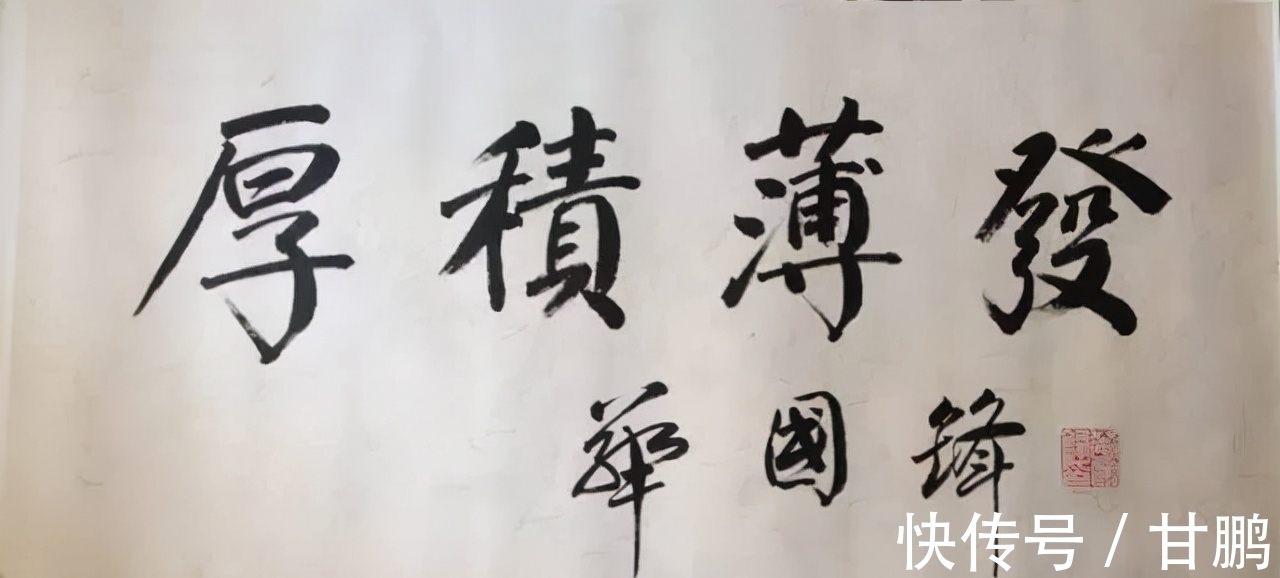 厚積薄發
華國鋒
快传号 / 甘鹏